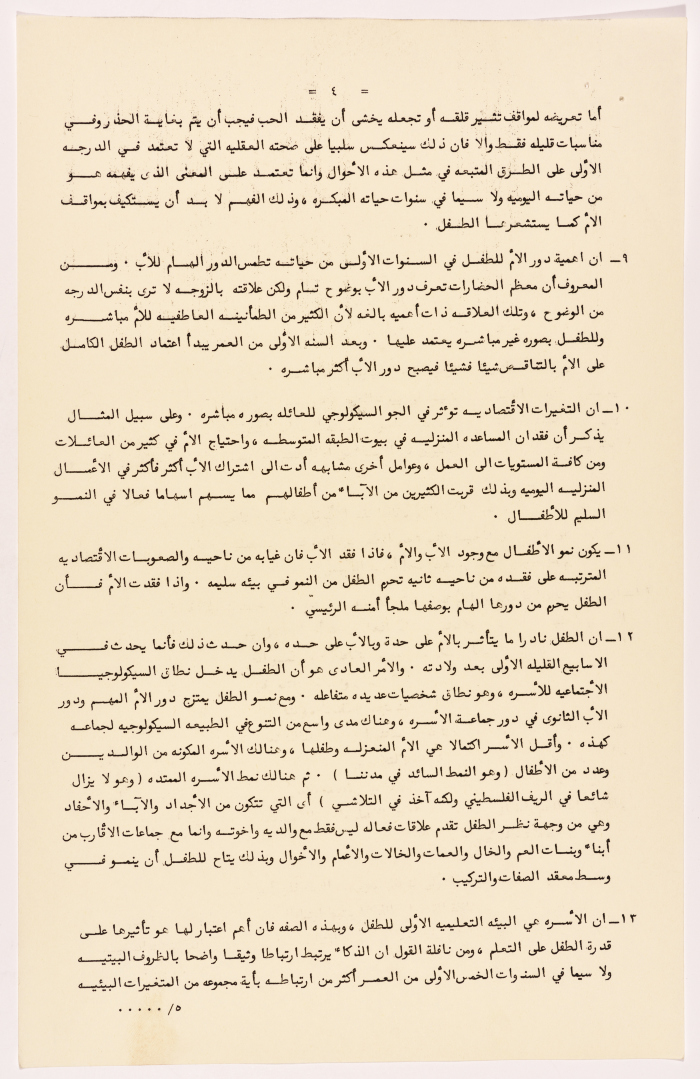 = ٤ =
أما تعريضه لمواقف تثير قلقه أو تجعله يخشى أن يفقد الحب فيجب أن يتم بغاية الحذر وفي
مناسبات قليله فقط والا فان ذلك سينعكس سلبيا على صحته العقليه التي لا تعتمد في الدرجه
الأولى على الطرق المتبعه في مثل هذه الأحوال وانما تعتمد على المعنى الذى يفهمه هو
من حياته اليوميه ولا سيما في سنوات حياته المبكره ، وذلك الفهم لا بد أن يستكيف بمواقف
الأم كما يستشعرها الطفل .
٩ـ ان اهمية دور الأم للطفل في السنوات الأولى من حياته تطمس الدور الهام للأب . ومن
المعروف أن معظم الحضارات تعرف دور الأب بوضوح تام ولكن علاقته بالزوجه لا ترى بنفس الدرجه
من الوضوح ، وتلك العلاقه ذات أهميه بالغه لأن الكثير من الطمأنينه العاطفيه للأم مباشره
وللطفل بصوره غير مباشره يعتمد عليها . وبعد السنه الأولى من العمر يبدأ اعتماد الطفل الكامل
على الأم بالتناقص شيئا فشيئا فيصبح دور الأب أكثر مباشره .
١٠ـ ان التغيرات الاقتصاديه توءثر في الجو السيكولوجي للعائله بصوره مباشره . وعلى سبيل المثال
يذكر أن فقدان المساعده المنزليه في بيوت الطبقه المتوسطه ، واحتياج الأم في كثير من العائلات
ومن كافة المستويات الى العمل ، وعوامل أخرى مشابهه أدت الى اشتراك الأب أكثر فأكثر في الأعمال
المنزليه اليوميه وبذلك قربت الكثيرين من الآباء من أطفالهم مما يسهم اسهاما فعالا في النمو
السليم للأطفال .
١١ـ يكون نمو الأطفال مع وجود الأب والأم ، فاذا فقد الأب فان غيابه من ناحيه والصعوبات الاقتصاديه
المترتبه على فقده من ناحيه ثانيه تحرم الطفل من النمو في بيئه سليمه . واذا فقدت الأم فأن
الطفل يحرم من دورها الهام بوصفها ملجأ أمنه الرئيسيّ .
١٢ـ ان الطفل نادرا ما يتأثر بالأم على حدة وبالأب على حده ، وان حدث ذلك فأنما يحدث في
الاسابيع القليله الأولى بعد ولادته . والأمر العادى هو أن الطفل يدخل نطاق السيكولوجيا
الأجتماعيه للأسره ، وهو نطاق شخصيات عديده متفاعله . ومع نمو الطفل يمتزج دور الأم المهم ودور
الأب الثانوى في دور جماعة الأسره ، وهناك مدى واسع من التنوع في الطبيعه السيكولوجيه لجماعه
كهذه . وأقل الأسر اكتمالا هي الأم المنعزله وطفلها ، وهنالك الأسره المكونه من الوالدين
وعدد من الأطفال ( وهو النمط السائد في مدننا ) . ثم هنالك نمط الأسره الممتده ( وهو لا يزال
شائعا في الريف الفلسطيني ولكنه آخذ في التلاشي ) أى التي تتكون من الأجداد والآباء والأحفاد
وهي من وجهة نظر الطفل تقدم علاقات فعاله ليس فقط مع والديه واخوته وانما مع جماعات الاقارب من
أبناء وبنات العم والخال والعمات والخالات والأعمام والأخوال وبذلك يتاح للطفل أن ينمو في
وسط معقد الصفات والتركيب .
١٣ـ ان الأسره هي البيئه التعليميه الأولى للطفل ، وبهذه الصفه فان أهم اعتبار لها هو تأثيرها على
قدرة الطفل على التعلم ، ومن نافلة القول ان الذكاء يرتبط ارتباطا وثيقا واضحا بالظروف البيتيه
ولا سيما في السنوات الخمس الأولى من العمر أكثر من ارتباطه بأية مجموعه من المتغيرات البيئيه
٥/ . . . . .